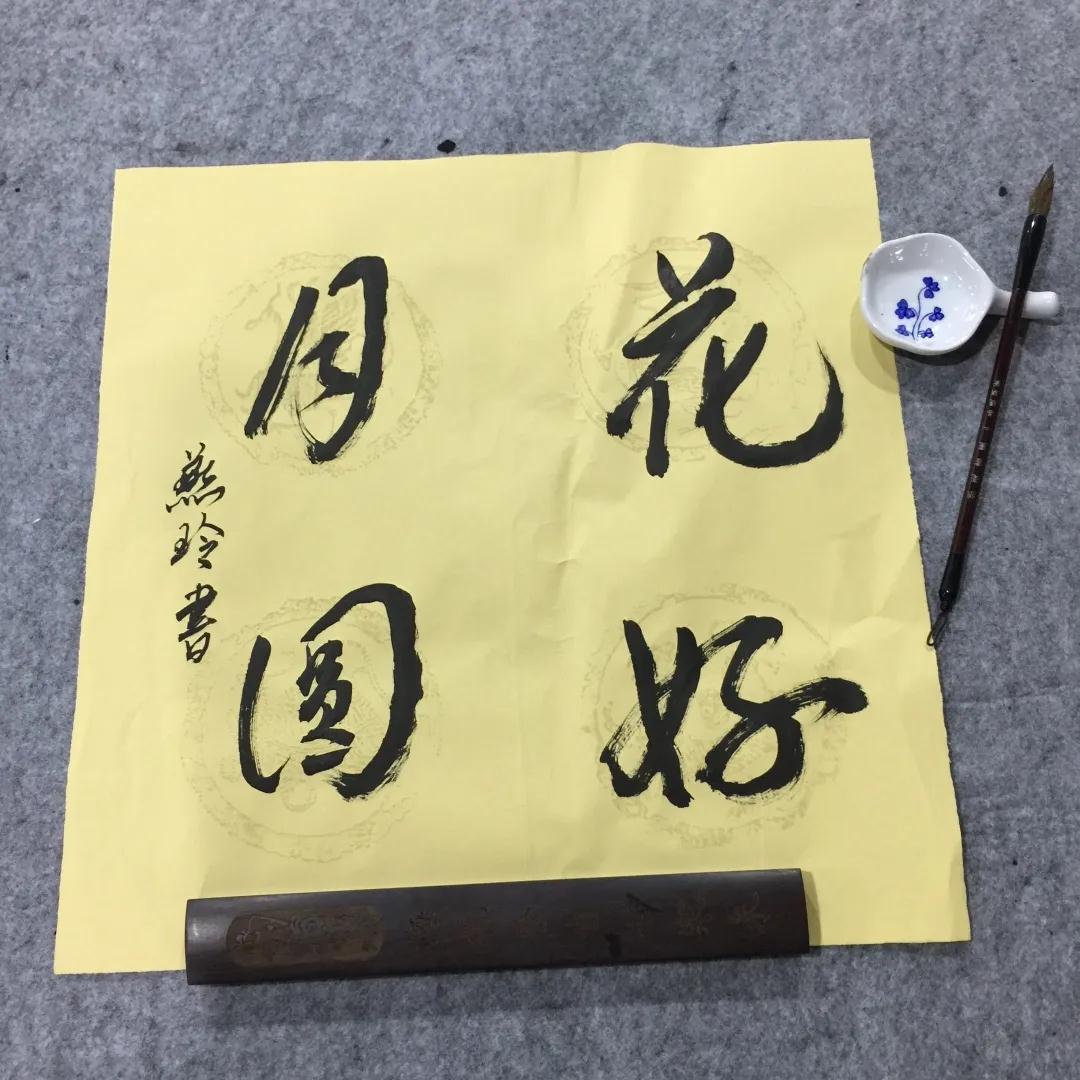 花好
月圓
燕玲書